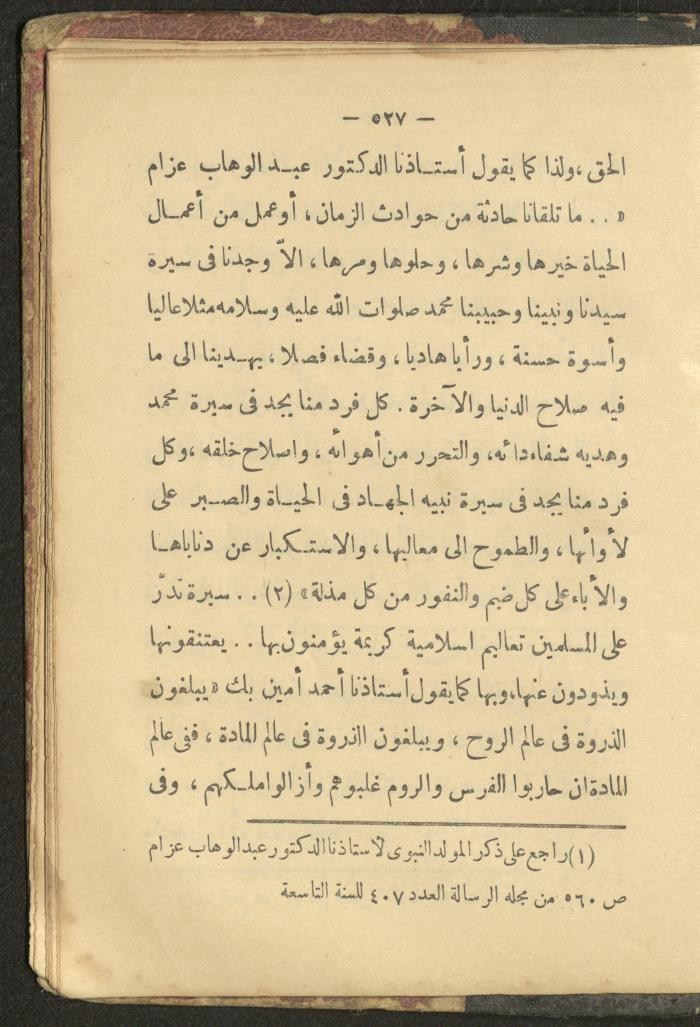 — ٥٢٧ —
الحق ،ولذا كما يقول أستاذنا الدكتور عبد الوهاب عزام
« . . ما تلقانا حادثة من حوادث الزمان ، أوعمل من أعمال
الحياة خيرها وشرها ، وحلوها ومرها ، الاّ وجدنا فى سيرة
سيدنا ونبينا وحبيبنا محمد صلوات الله عليه وسلامه مثلا عاليا
وأسوة حسنة ، ورأيا هاديا ، وقضاء فصلا ، يهدينا الى ما
فيه صلاح الدنيا والآخرة . كل فرد منا يجد فى سيرة محمد
وهديه شفاء دائه، والتحرر من أهوائه ، واصلاح خلقه ،وكل
فرد منا يجد فى سيرة نبيه الجهاد فى الحياة والصبر على
لأوائها ، والطموح الى معاليها ، والاستكبار عن دناياها
والأباء على كل ضيم والنفور من كل مذلة» (٢) . . سيرة تدرّ
على المسلمين تعاليم اسلامية كريمة يؤمنون بها . . يعتنقونها
ويذودون عنها،وبها كما يقول أستاذنا أحمد أمين بك « يبلغون
الذروة فى عالم الروح ، ويبلغون الذروة فى عالم المادة ، ففى عالم
المادة ان حاربوا الفرس والروم غلبوهم وأزالوا ملكهم ، وفى
(١) راجع على ذكر المولد النبوى لأستاذنا الدكتور عبد الوهاب عزام
ص ٥٦٠ من مجله الرسالة العدد ٤٠٧ للسنة التاسعة